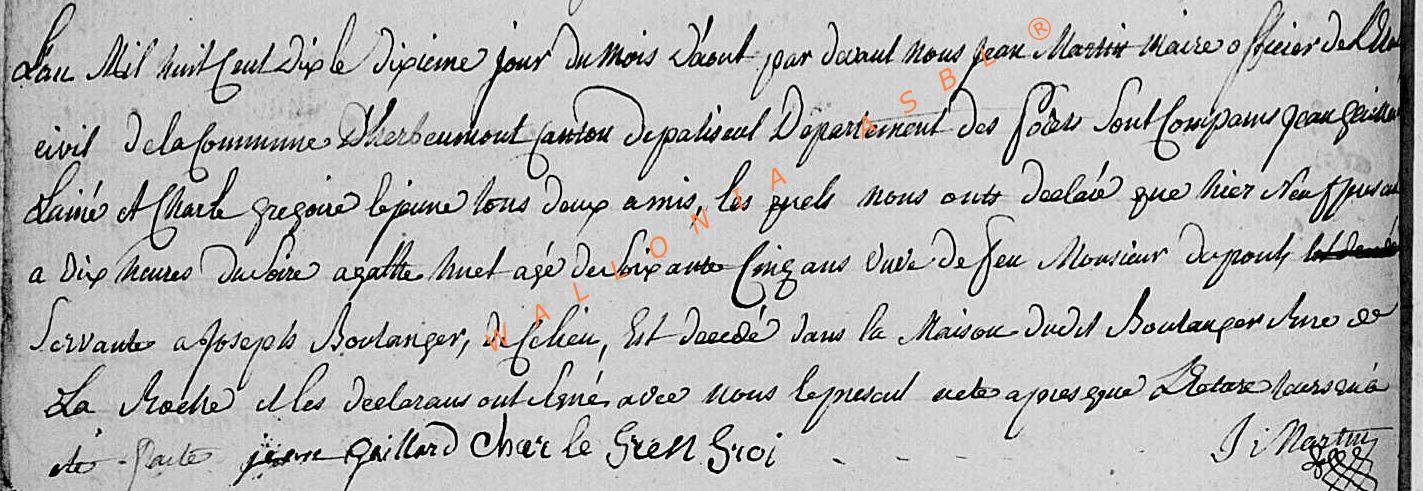 L'an Mil huit Cent Dix le dixieme jour du Mois D'aout par devant nous Jean Martin Maire officier de L'Etat
civil de la Commune d'herbeumont Canton de paliseul Département des forêts Sont Comparus Jean Gaillard
Lainé et Charle gregoire le jeune tous deux amis, les quels nous onts declaré que hier Neuf
a Dix heures du Soire agatte huet agé de Soixante Cinq ans veve de feu Monsieur dupont,
Servante a Joseph Boulanger, de Celieu, Est decedé dans la Maison dudit Boulanger Rue de
La Roche et les declarans ont signé avec nous le present acte apres que
été faite jean gaillard Charle Gre Groi J i Martin
WALLONIA ASBL ®